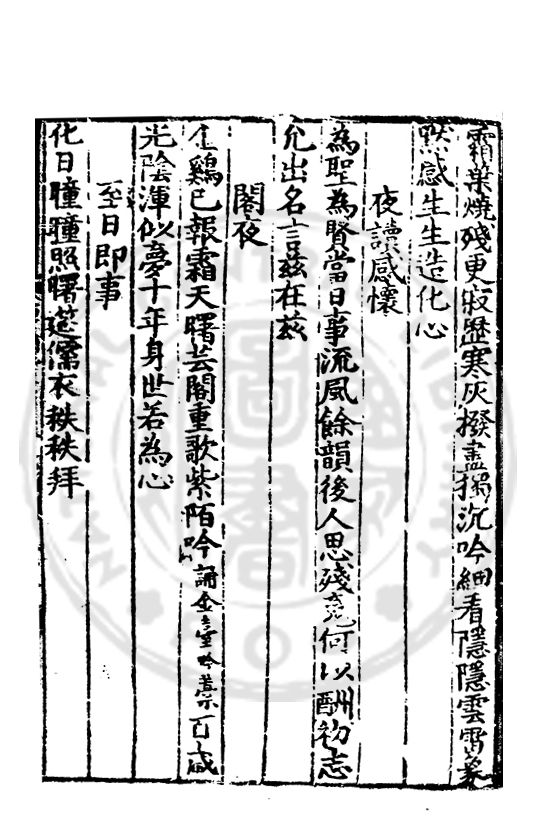 霜葉燒殘更寂歷寒灰撥盡獨沉吟細看隱隱雲雷象
黙感生生造化心
夜讀感懷
為聖為賢當日事流風餘韻後人思殘竟何以酬初志
允出名言茲在茲
閣夜
金鷄已報霜天曙芸閣重歌紫陌吟誦金吟百歲
光陰渾似夢十年身世若為心
至日即事
化日曈曈照曙筵儒衣秩秩拜